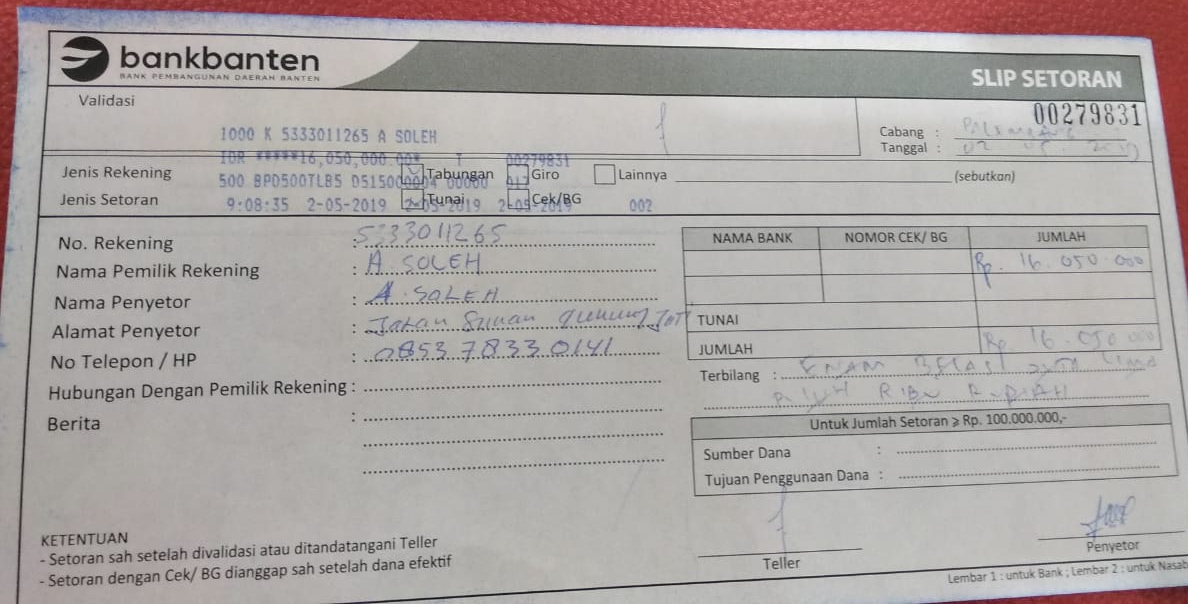 bankbanten
BANK PEMBANGUNAN DAERAH BANTEN
SLIP SETORAN
00279831
Validasi
1000 K 5333011265 A SOLEH
Cabang :
Tanggal : 02
IDR *****16,050,000.00* T 00279831
Jenis Rekening Tabungan Giro Lainnya (sebutkan)
500 BPD500TLB5 D515000004 00000 017
Jenis Setoran Tunai Cek/BG
9:08:35 2-05-2019 2-05-2019 2-05-2019 002
No. Rekening : 5333011265
Nama Pemilik Rekening : A. SOLEH
Nama Penyetor : A. SOLEH
Alamat Penyetor : Jalan Sunan Gunung Jati
No Telepon / HP : 0853 7833 0141
Hubungan Dengan Pemilik Rekening :
Berita :
NAMA BANK NOMOR CEK/ BG JUMLAH
Rp. 16.050.000
TUNAI
JUMLAH Rp 16.050.000
Terbilang : ENAM BELAS JUTA LIMA
PULUH RIBU RUPIAH
Untuk Jumlah Setoran ⩾ Rp. 100.000.000,-
Sumber Dana :
Tujuan Penggunaan Dana :
KETENTUAN
- Setoran sah setelah divalidasi atau ditandatangani Teller
- Setoran dengan Cek/ BG dianggap sah setelah dana efektif
Teller
Penyetor
Lembar 1 : untuk Bank ; Lembar 2 : untuk Nasab